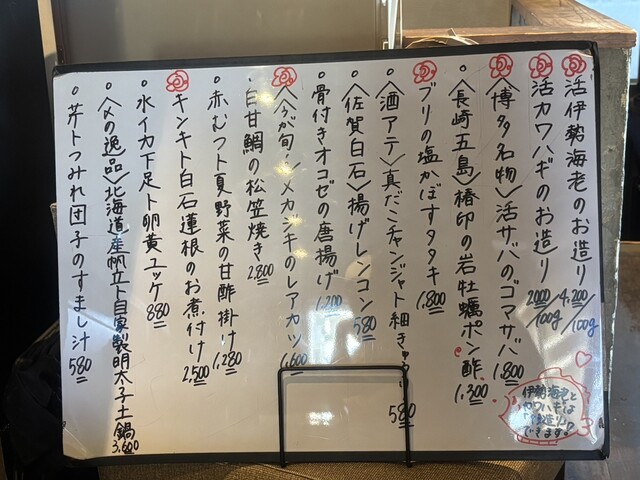 活伊勢海老のお造り 4,200/100g
活カワハギのお造り 2000/100g
〈博多名物〉活サバのゴマサバ 1,800
〈長崎五島〉椿印の岩牡蠣ポン酢 1,300
ブリの塩かぼすタタキ 1,800
〈酒アテ〉真だこチャンジャト細きゅう 580
〈佐賀白石〉揚げレンコン 580
骨付きオコゼの唐揚げ 1,200
〈今が旬〉メカジキのレアカツ 1,600
白甘鯛の松笠焼き 2,800
赤むつト夏野菜の甘酢掛け 1,280
キンキト白石蓮根のお煮付け 2,500
水イカ下足ト卵黄ユッケ 880
〈〆の逸品〉北海道産帆立ト自家製明太子土鍋 3,600
芹トつみれ団子のすまし汁 580
伊勢海老と
カワハギは
できます。